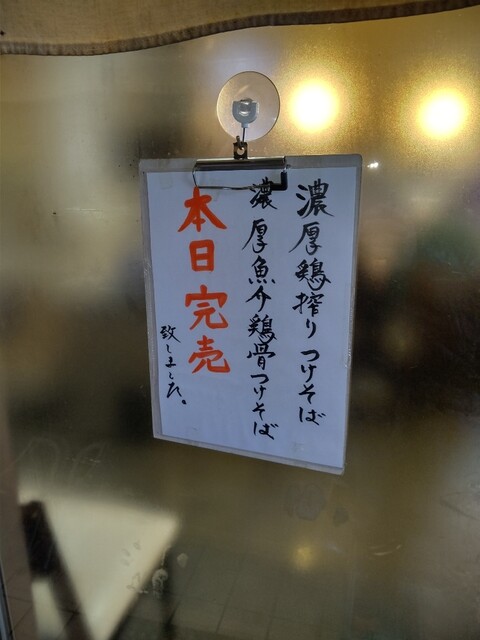 濃厚鶏搾りつけそば
濃厚魚介鶏骨つけそば
本日完売
致しました。